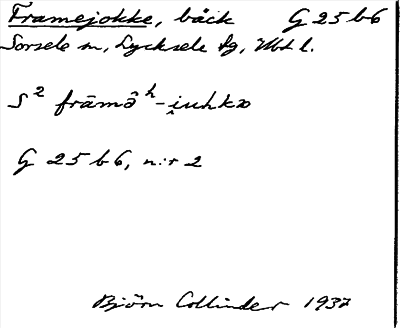 Framejokke, bäck G 25 b 6
Sorsele sn, Lycksele lg, Vbt l.
S² frāmə̑ʰ-i̯uhkə
G 25 b 6, n:r 2
Björn Collinder 1937